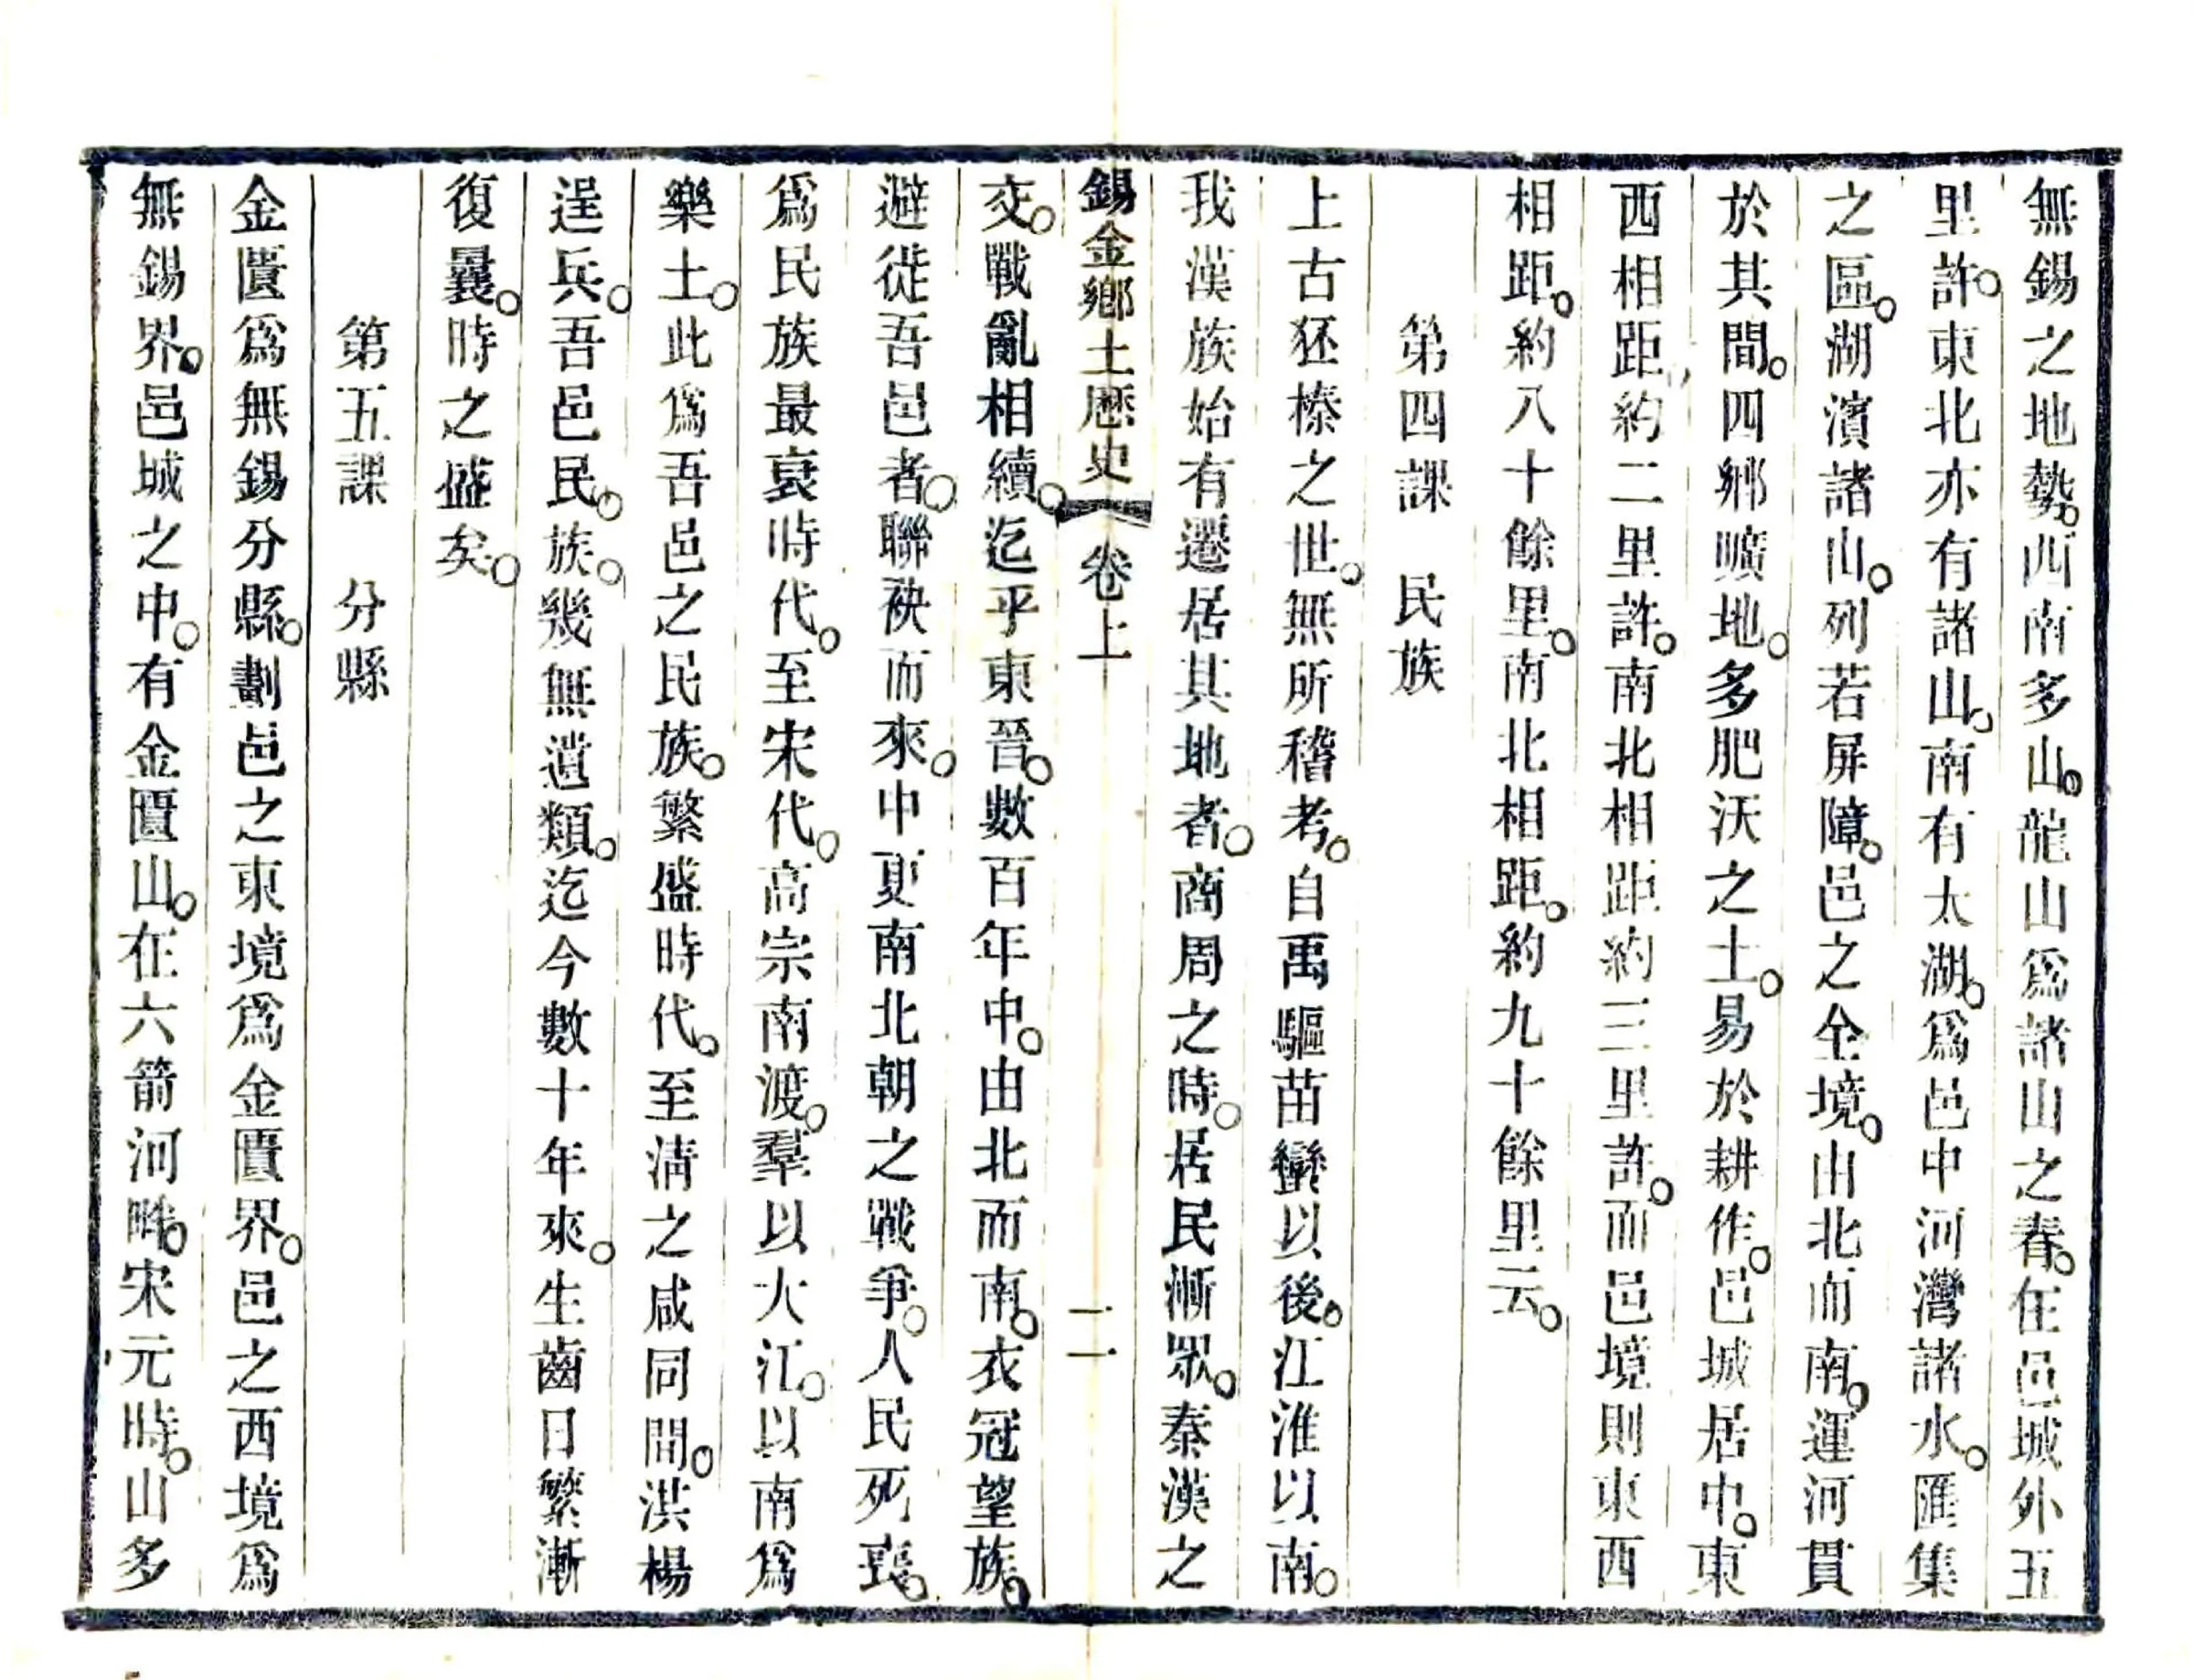 無錫之地勢。西南多山。龍山爲諸山之春。在邑城外五
里許。東北亦有諸山。南有太湖。爲邑中河灣諸水。匯集
之區。湖濱諸山。列若屏障。邑之全境。由北而南。運河貫
於其間。四鄕曠地。多肥沃之土。易於耕作。邑城居中。東
西相距約二里許。南北相距約三里許。而邑境則東西
相距。約八十餘里。南北相距。約九十餘里云。
第四課　民族
上古狉榛之世。無所稽考。自禹驅苗蠻以後。江淮以南。
我漢族始有遷居其地者。商周之時。居民漸眾。秦漢之
錫金鄕土歷史　卷上　二
交。戰亂相續。迄乎東晉。數百年中。由北而南。衣冠望族。
避徙吾邑者。聯袂而來。中更南北朝之戰爭。人民死喪。
爲民族最衰時代。至宋代。高宗南渡。羣以火江。以南爲
樂土。此爲吾邑之民族。繁盛時代。至淸之咸同間。洪楊
逞兵。吾邑民。族。幾無遺類。迄今數十年來。生齒日繁漸
復曩。時之盛矣。
第五課　分縣
金匱爲無錫分縣。劃邑之東境爲金匱界。邑之西境爲
無錫界。邑城之中。有金匱山。在六箭河畔。宋元時。山多